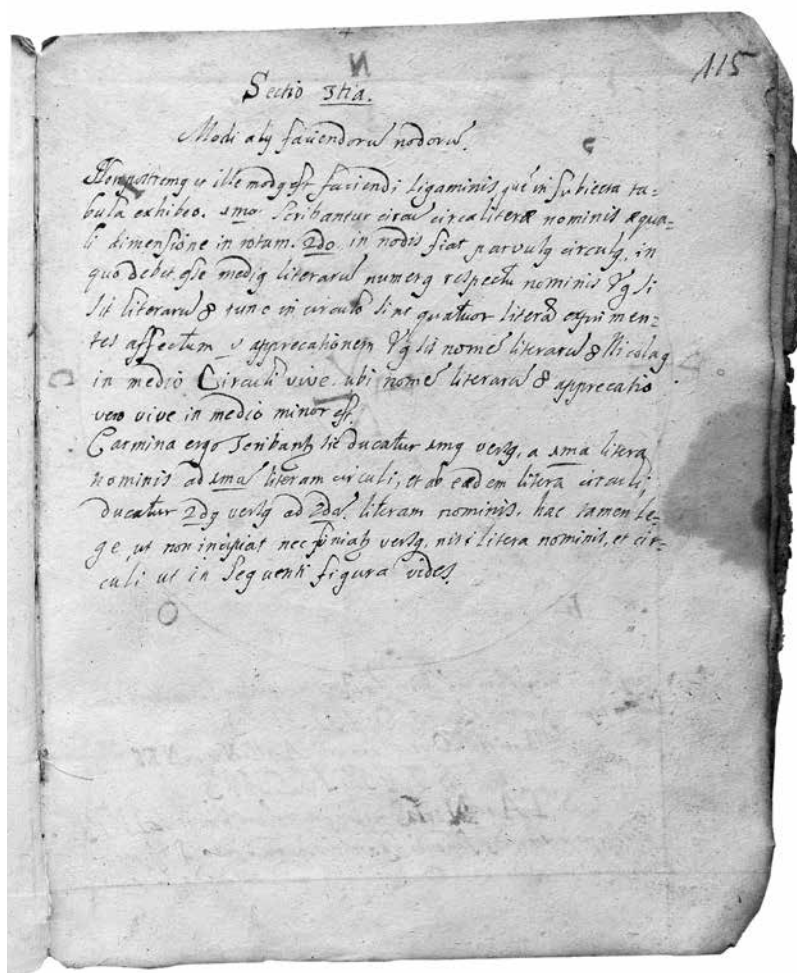 115
Sectio 3tia.
Modi alij faciendorũ nodorũ.
Non postremq et ille modq est faciendi ligaminis quẽ in subiecta ta-
bula exhibeo. 1mo Scribantur circa literæ nominis æqua-
li dimensione in rotam. 2do in nodis fiat parvulq circulq, in
quo debet esse mediq literarũ numerq respectu nominis Vg si
sit literarũ 8 tunc in circulo sint quatuor literæ exprimen-
tes affectum v apprecationem Vg sit nomẽ literarũ 8 Nicolaq
in medio Circuli vive. ubi nomẽ literarũ 8 apprecatio
vero vive in medio minor est.
Carmina ergo scribantq sic ducatur 1mq versq, a 1ma litera
nominis ad 1mã literam circuli, et ab eadem litera circuli,
ducatur 2dq versq ad 2dã literam nominis. hac tamen le-
ge, ut non incipiat nec finiatq versq, nisi litera nominis, et cir-
culi ut in sequenti figura vides.